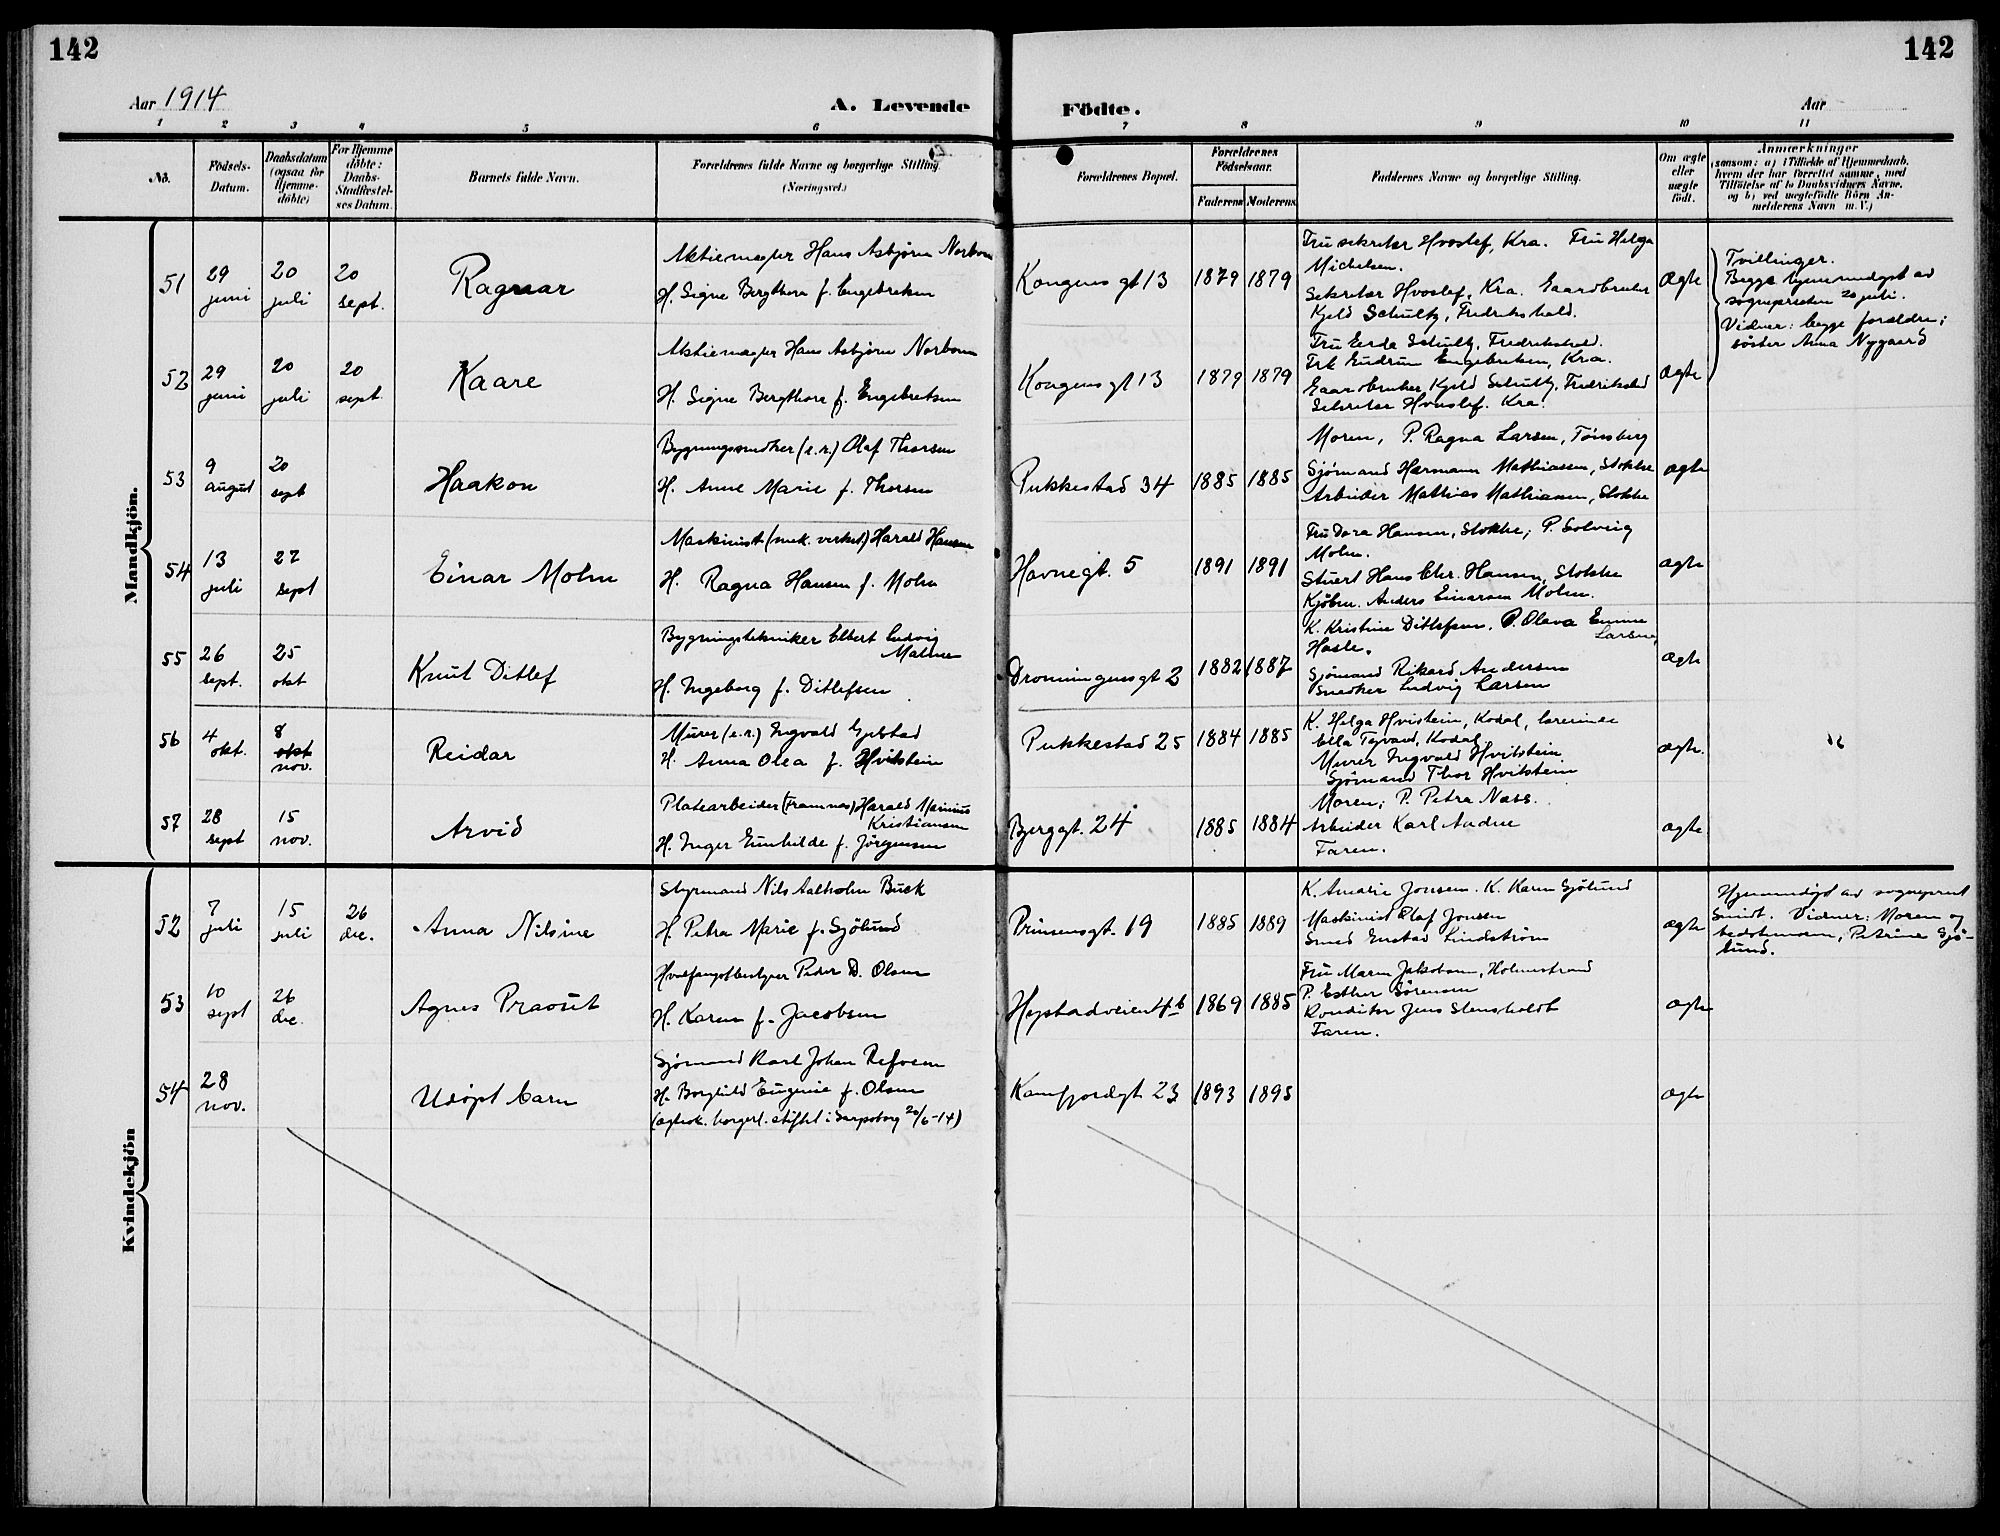 142
142
Aar 1914
A. Levende
Födte.
Aar
1 2 3 4 5 6 7 8 9 10 11
No.
Födsels-
Datum.
Daabsdatum
(ogsaa for
Hjemme-
döbte)
For Hjemme
döbte:
Daabs-
Stadfæstel-
ses Datum.
Barnets fulde Navn.
Forældrenes fulde Navne og borgerlige Stilling.
(Næringsvei.)
Forældrenes Bopæl.
Forældrenes
Födselsaar.
Faderens
Moderens
Faddernes Navne og borgerlige Stilling.
Om ægte
eller
uægte
födt.
Anmærkninger
(saasom: a) i Tilfælde af Hjemmedaab,
hvem der har forrettet samme, med
Tilföielse af to Daabsvidners Navne,
og b) ved uægtefödte Börn An-
melderens Navn m. V.)
Mandkjön.
51
29
juni
20
juli
20
sept.
Ragnar
Aktiemægler Hans Asbjørn Norbom
H. Signe Bergthora f. Engebretsen
Kongens gt 13
1879 1879
Fru sekretær Hvoslef, Kra. Fru Helga
Michelsen.
Sekretær Hvoslef, Kra. Gaardbruker
Kjeld Schultz, Fredrikshald.
ægte
Tvillinger.
Begge hjemmedøpt av
sognepresten 20 juli.
Vidner: begge forældre;
söster Anna Nygaard
52
29
juni
20
juli
20
sept.
Kaare
Aktiemægler Hans Asbjørn Norbom
H. Signe Bergthora f. Engebretsen
Kongens gt 13
1879 1879
Fru Gerda Schultz, Fredrikshald.
Frk Gudrun Engebretsen, Kra.
Gaardbruker Kjeld Schultz, Fredrikshald
Sekretær Hvoslef. Kra.
ægte
53
9
august
20
sept
Haakon
Bygningssnedker (e.r.) Olaf Thorsen
H. Anne Marie f. Thorsen
Pukkestad 34
1885 1885
Moren, P. Ragna Larsen, Tönsberg
Sjömand Hermann Mathiassen, Stokke
Arbeider Mathias Mathiassen, Stokke
ægte
54
13
juli
27
sept
Einar Molm
Maskinist (mek. verkst.) Harald Hansen
H. Ragna Hansen f. Molm
Havnegt. 5
1891 1891
Fru Dora Hansen, Stokke; P. Solveig
Molm.
Stuert Hans Chr. Hansen, Stokke
Kjöbm. Anders Einarsen Molm.
ægte
55
26
sept.
25
okt
Knut Ditlef
Bygningstekniker Elbert Ludvig
H. Ingeborg f. Ditlefsen
Dronningensgt 2
1882 1887
K. Kristine Ditlefsen. P. Olava Emma
Larsen,
Hasle.
Sjömand Rikard Andersen
Snedker Ludvig Larsen
ægte
56
4
okt.
8
okt
nov.
Reidar
Murer (e.r.) Ingvald Gjelstad
H. Anna Olea f. Hvitstein
Pukkestad 25
1884 1885
K. Helga Hvistein, Kodal, lærerinde
Ella Tegvard, Kodal
Murer Ingvald Hvitstein
Sjömand Thor Hvitstein
ægte.
57
28
sept
15
nov.
Arvid
Platearbeider (Framnæs) Harald Marinius
Kristiansen
H. Inger Gunhilde f. Jörgensen
Berggt. 24
1885 1884
Moren; P. Petra Næss.
Arbeider Karl Andre
Faren.
ægte
Kvindekjön
52
7
juli
15
juli
26
dec.
Anna Nilsine
Styrmand Nils Aalholm Buck
H. Petra Marie f. Sjölund
Prinsensgt. 19
1885 1889
K. Amalie Jonsen. K. Karen Sjölund
Maskinist Olaf Jonsen
Smed Gustav Lindström
ægte
Hjemmedöpt av sogneprest
Smidt. Vidner: Moren og
bedstemoren, Petrine Sjö-
lund.
53
10
sept
26
dec.
Agnes Praout
Hvalfangstbestyrer Peder D. Olsen
H. Karen f. Jacobsen
Hystadveien 4b
1869 1885
Fru Maren Jakobsen, Holmestrand
P. Esther Sörensen
Konditor Jens Stensholdt
Faren.
ægte
54
28
nov.
Udöpt barn
Sjömand Karl Johan Refvem
H. Borghild Eugenie f. Olsen
(ægtesk. borgerl. stiftet i Sarpsborg 20/6-14)
Kamfjordgt 23
1893 1895
ægte